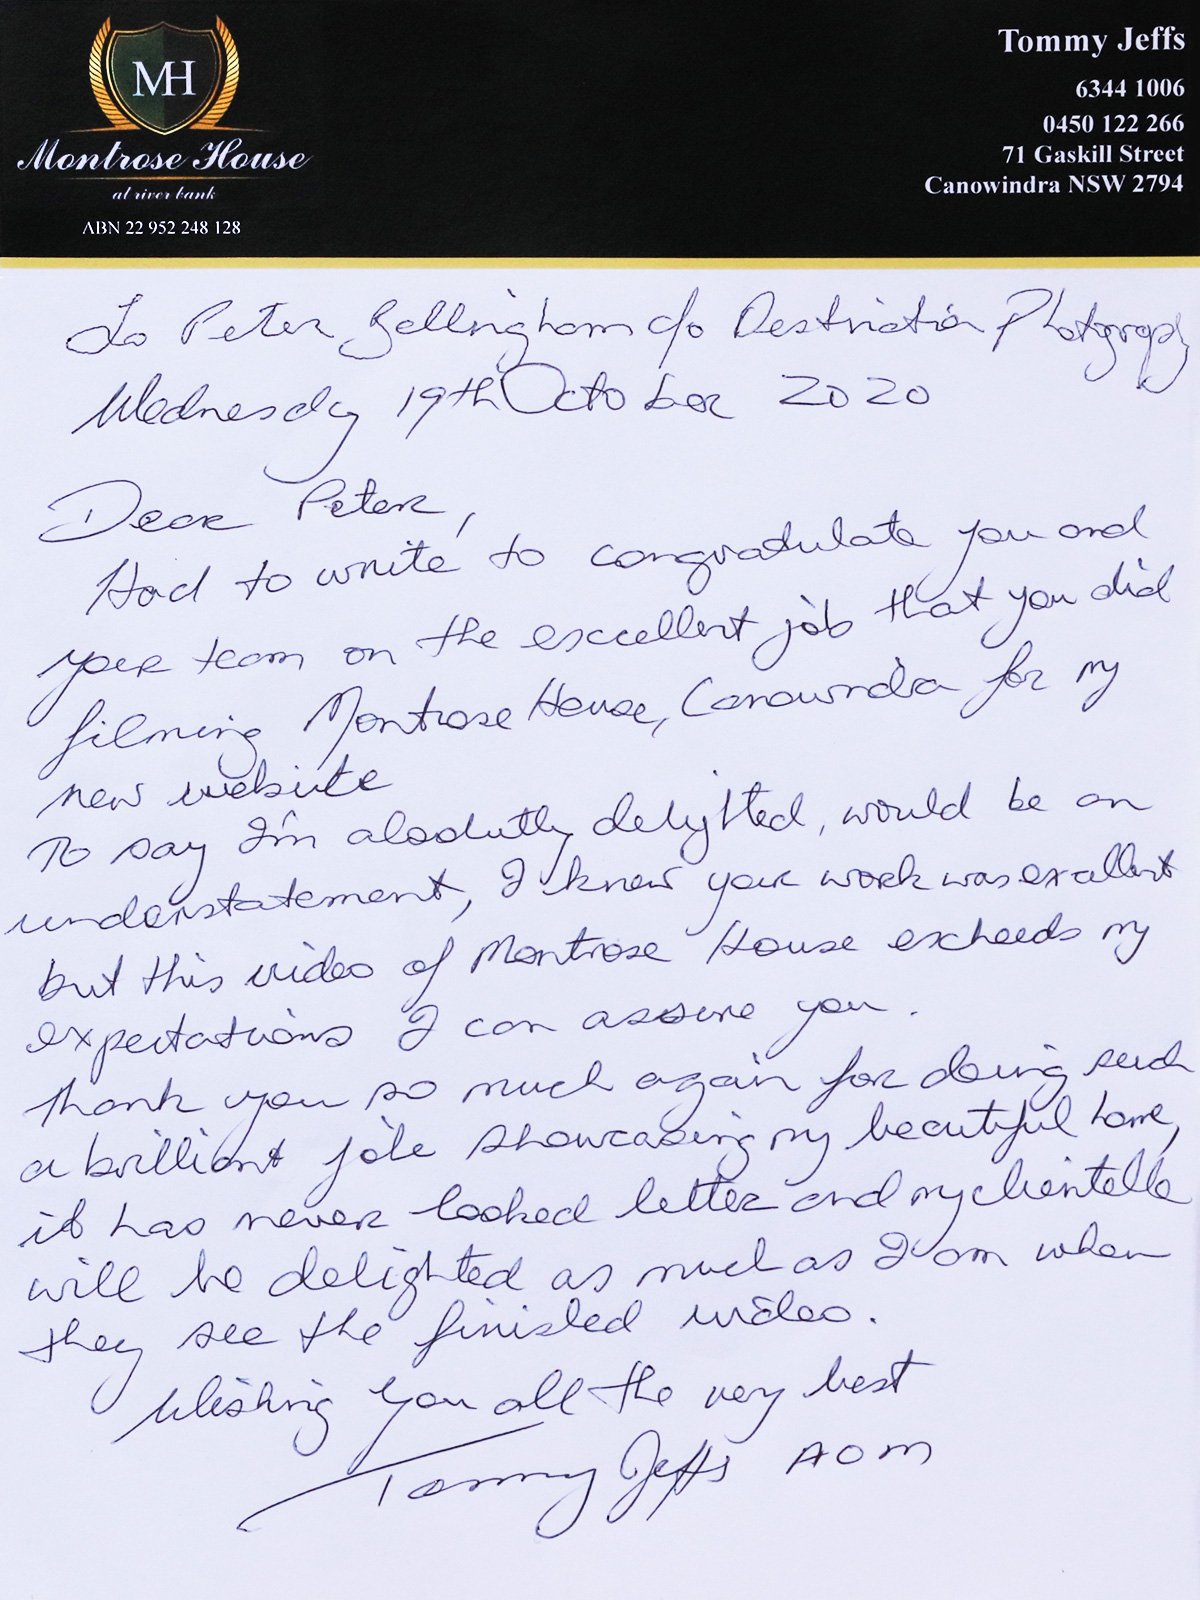 MH
Montrose House
at river bank
ABN 22 952 248 128
Tommy Jeffs
6344 1006
0450 122 266
71 Gaskill Street
Canowindra NSW 2794
To Peter Bellingham c/o Destination Photography
Wednesday 19th October 2020
Dear Peter,
Had to write to congratulate you and
your team on the excellent job that you did
filming Montrose House, Canowindra for my
new website
To say I'm absolutly delighted, would be an
understatement, I knew your work was excellent
but this video of Montrose House exceeds my
expectations I can assure you.
Thank you so much again for doing such
a brilliant job showcasing my beautiful home,
it has never looked better and my clientelle
will be delighted as much as I am when
they see the finished video.
Wishing you all the very best
Tommy Jeffs AOM